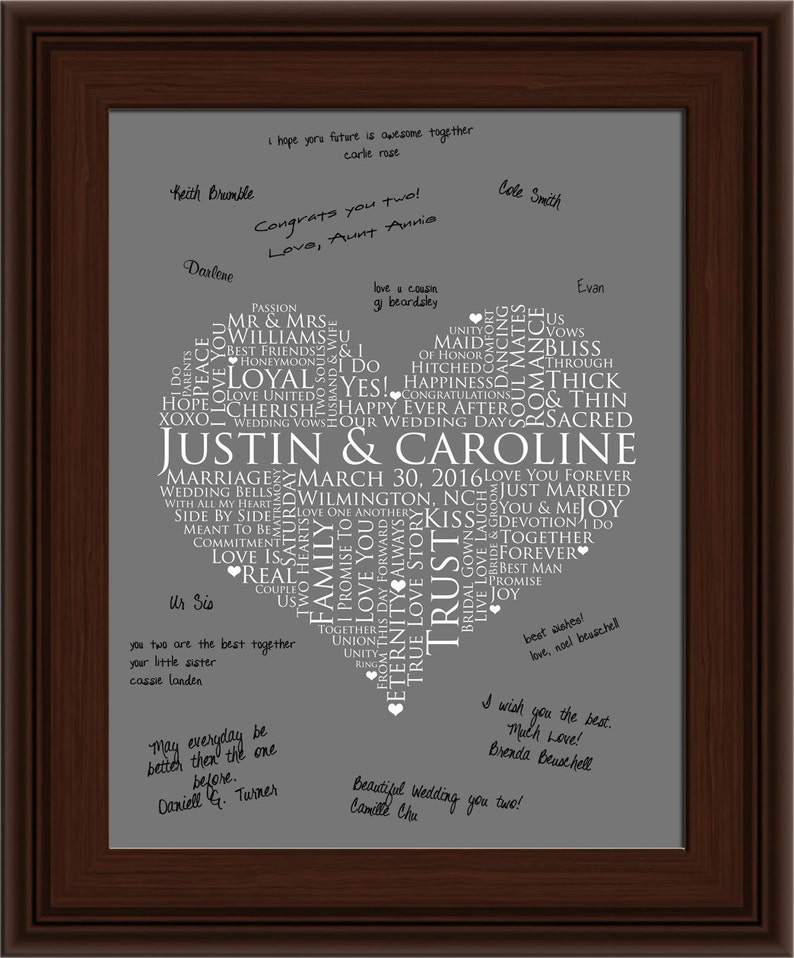 i hope yoru future is awesome together
carlie rose
Keith Brumble
Cole Smith
Congrats you two!
Love, Aunt Annie
Darlene
love u cousin
gj beardsley
Evan
Passion
Mr & Mrs
Williams
Best Friends
Honeymoon
Loyal
Love United
Cherish
Wedding Vows
I Do
Parents
Peace
I Love You
Hope
XOXO
Two Souls
Husband & Wife
U
& I
I Do
Yes!
Happy Ever After
Our Wedding Day
Unity
Maid
Of Honor
Hitched
Happiness
Congratulations
Comfort
Dancing
Soul Mates
Romance
Us
Vows
Bliss
Through
Thick
& Thin
Sacred
Justin & Caroline
Marriage
Wedding Bells
With All My Heart
Side By Side
Meant To Be
Commitment
Love Is
Real
Couple
Us
Matrimony
Saturday
Two Hearts
March 30, 2016
Wilmington, NC
Love One Another
Family
I Promise To
Love You
From This Day Forward
Always
Eternity
True Love Story
Kiss
Trust
Together
Union
Unity
Ring
Bridal Gown
Live Love Laugh
Bride & Groom
Love You Forever
Just Married
You & Me
Joy
Devotion
I Do
Together
Forever
Best Man
Promise
Joy
Ur Sis
you two are the best together
your little sister
cassie landen
best wishes!
love, noel beuschell
May everyday be
better then the one
before.
Daniell G. Turner
I wish you the best.
Much Love!
Brenda Beuschell
Beautiful Wedding you two!
Camille Chu